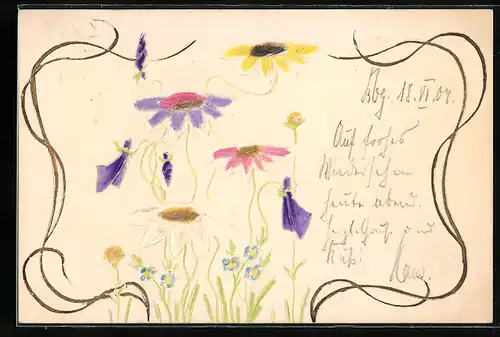 Bbg. 18.VI.04.
Auf frohes
Wiedersehen
heute abend.
Herzl. Gruß und
Kuß!
Hans.